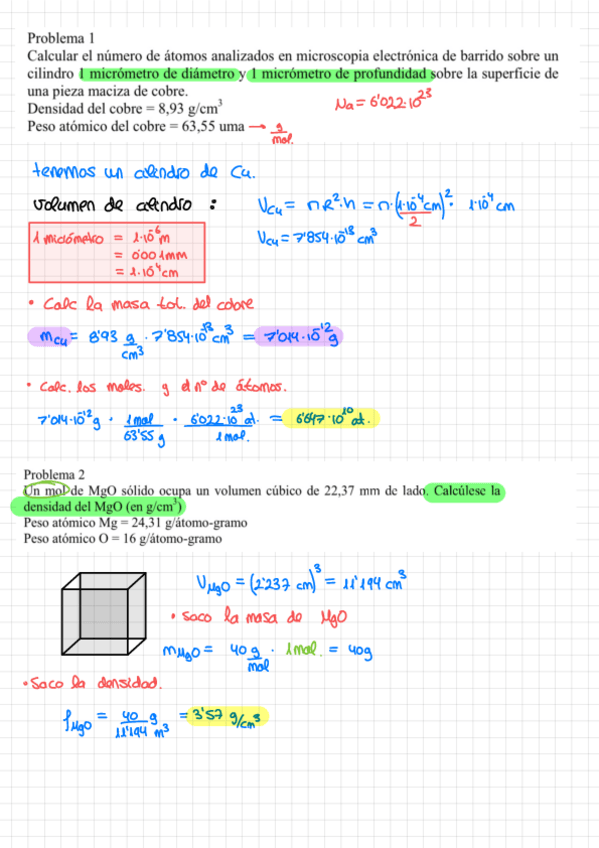 Problema 1
Calcular el número de átomos analizados en microscopia electrónica de barrido sobre un
cilindro 1 micrómetro de diámetro y 1 micrómetro de profundidad sobre la superficie de
una pieza maciza de cobre.
Densidad del cobre = 8,93 g/cm³
Na = 6'022·10²³
Peso atómico del cobre = 63,55 uma → g/mol.
tenemos un cilindro de Cu.
volumen de cilindro :
V_Cu = π R²·h = π·(1·10⁻⁴cm/2)²· 1·10⁻⁴ cm
V_Cu = 7'854·10⁻¹³ cm³
1 micrómetro = 1·10⁻⁶ m
= 0'001 mm
= 1·10⁻⁴ cm
• Calc la masa tot. del cobre
m_Cu = 8'93 g/cm³ · 7'854·10⁻¹³ cm³ = 7'014·10⁻¹² g
• Calc. los moles. y el nº de átomos.
7'014·10⁻¹² g · 1mol/63'55 g · 6'022·10²³ at./1mol. = 6'647·10¹⁰ at.
Problema 2
Un mol de MgO sólido ocupa un volumen cúbico de 22,37 mm de lado. Calcúlese la
densidad del MgO (en g/cm³)
Peso atómico Mg = 24,31 g/átomo-gramo
Peso atómico O = 16 g/átomo-gramo
V_MgO = (2'237 cm)³ = 11'194 cm³
• Saco la masa de MgO
m_MgO = 40 g/mol · 1mol. = 40g
• Saco la densidad.
ρ_MgO = 40 g/11'194 m³ = 3'57 g/cm³